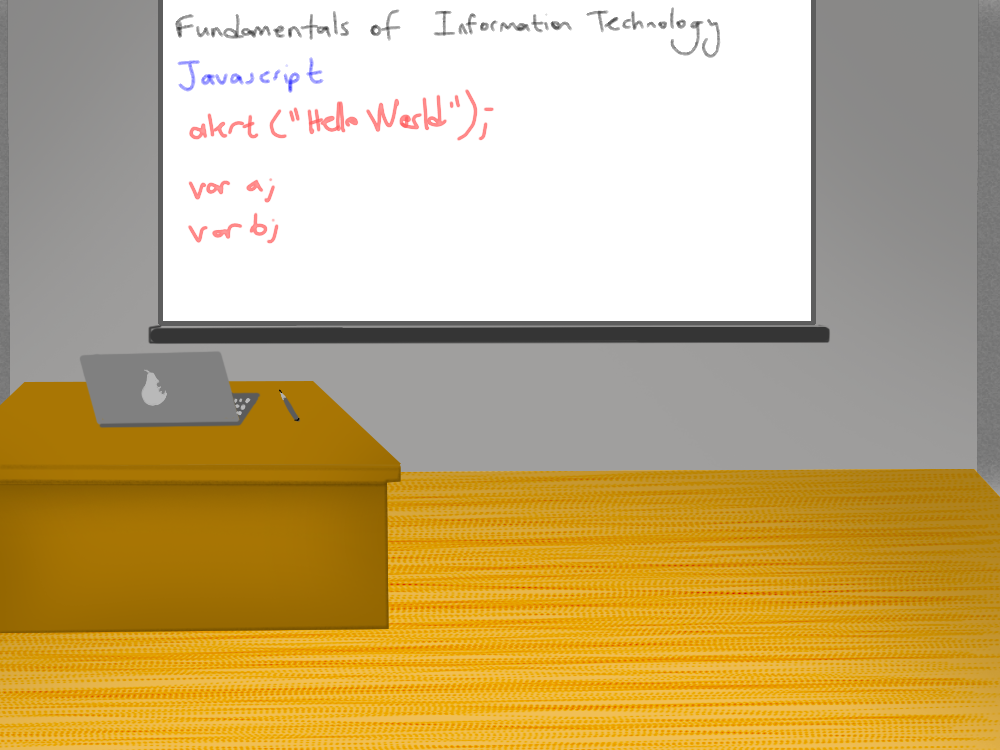 Fundamentals of Information Technology
Javascript
alert ("Hello World");
var a;
var b;